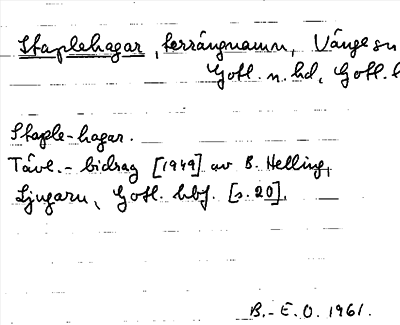 Staplehagar, terrängnamn, Vänge sn
Gotl. n. hd, Gotl. l
Staple-hagar.
Tävl.-bidrag [1949] av B. Helling,
Ljugarn, Gotl. bbf. [s. 20].
B.-E. O. 1961.